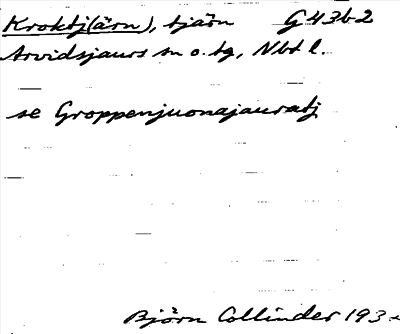 Kroktj(ärn), tjärn G43b2
Arvidsjaurs sn o. tg, Nbt l.
se Groppenjuonajauratj
Björn Collinder 193-